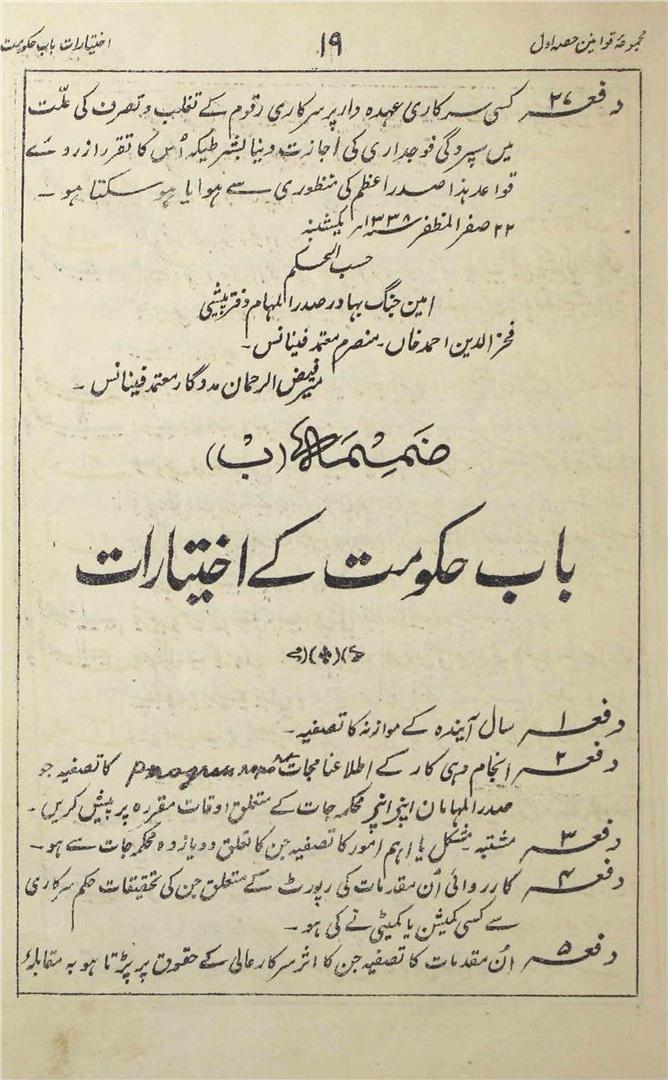 مجموعۂ قوانین حصہ اول
۱۹
اختیارات باب حکومت
دفعہ ۲۷ کسی سرکاری عہدہ دار پر سرکاری رقوم کے تغلب و تصرف کی علّت
میں سپردگی فوجداری کی اجازت دینا بشرطیکہ اُس کا تقرر ازروئے
قواعد ہذا صدر اعظم کی منظوری سے ہوا یا ہو سکتا ہو ۔
۲۲ صفر المظفر ۱۳۳۸ھ یکشنبہ
حسب الحکم
امین جنگ بہادر صدر المہام دفتر پیشی
فخر الدین احمد خاں ۔ منصرم معتمد فینانس ۔
میر فیض الرحمان مددگار معتمد فینانس ۔
ضمیمہ (ب)
باب حکومت کے اختیارات
دفعہ ۱ سال آیندہ کے موازنہ کا تصفیہ ۔
دفعہ ۲ انجام دہی کار کے اطلاعنامجات programme کا تصفیہ جو
صدر المہامان اپنے اپنے محکمہ جات کے متعلق اوقات مقررہ پر پیش کریں ۔
دفعہ ۳ مشتبہ ۔ مشکل یا اہم امور کا تصفیہ جن کا تعلق دو یا زیادہ محکمہ جات سے ہو ۔
دفعہ ۴ کارروائی اُن مقدمات کی رپورٹ کے متعلق جن کی تحقیقات حکم سرکاری
سے کسی کمیشن یا کمیٹی نے کی ہو ۔
دفعہ ۵ اُن مقدمات کا تصفیہ جن کا اثر سرکار عالی کے حقوق پر پڑتا ہو بہ مقابلۂ